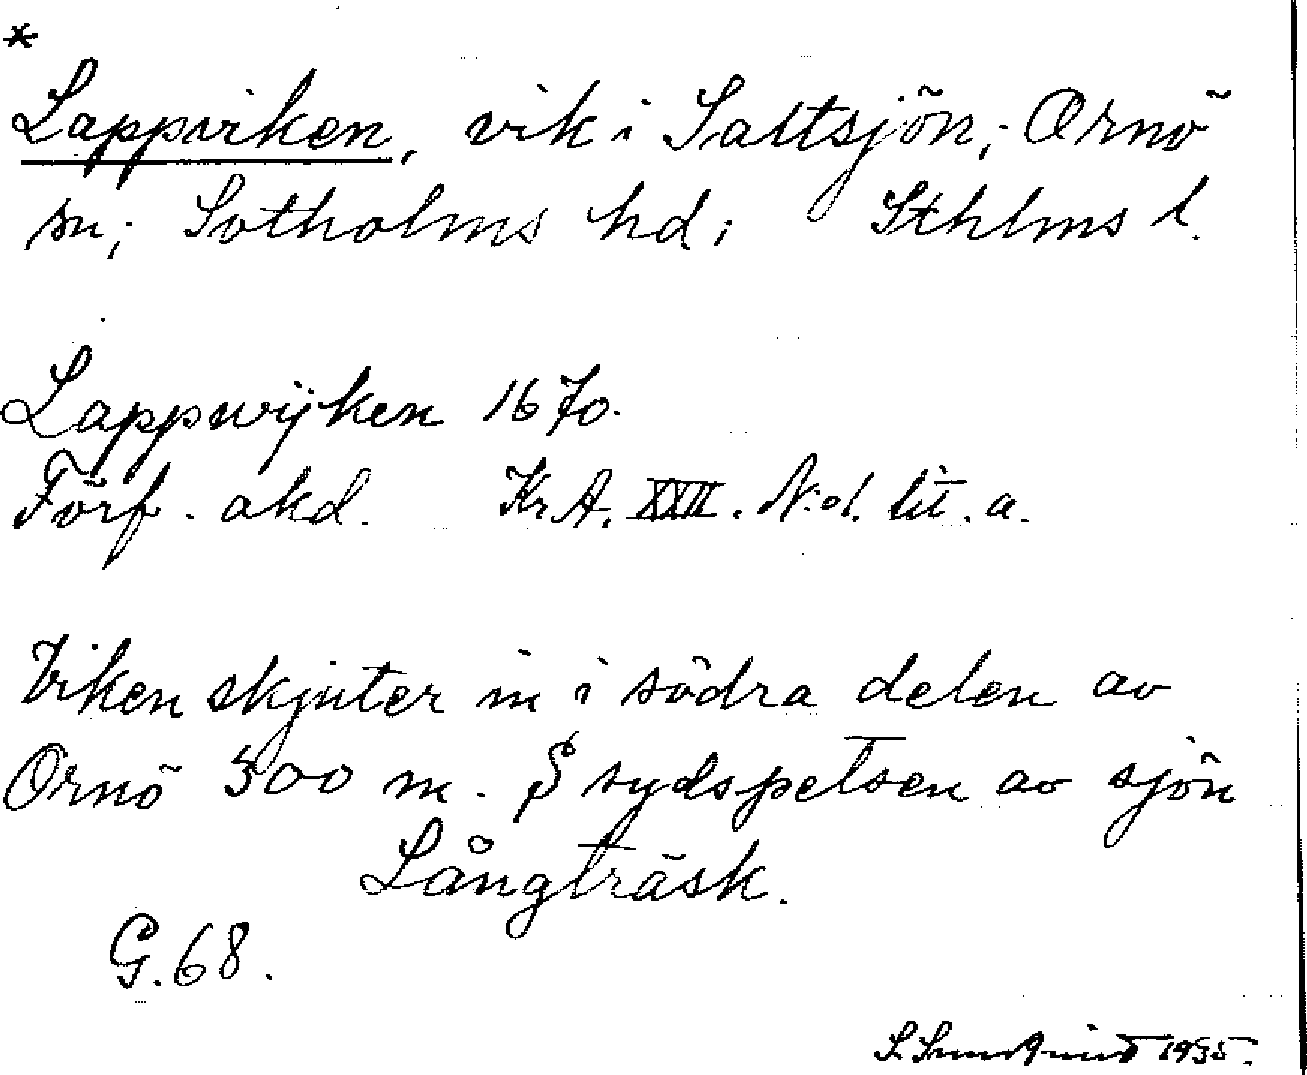 *
Lappviken, vik i Saltsjön; Ornö
sn; Sotholms hd; Sthlms l.
Lappwijken 1670.
Förf. akd. KrA. XXII. N:o 1. lit. a.
Viken skjuter in i södra delen av
Ornö 500 m. S sydspetsen av sjön
Långträsk.
G. 68.
S. Sundqvist 1935.